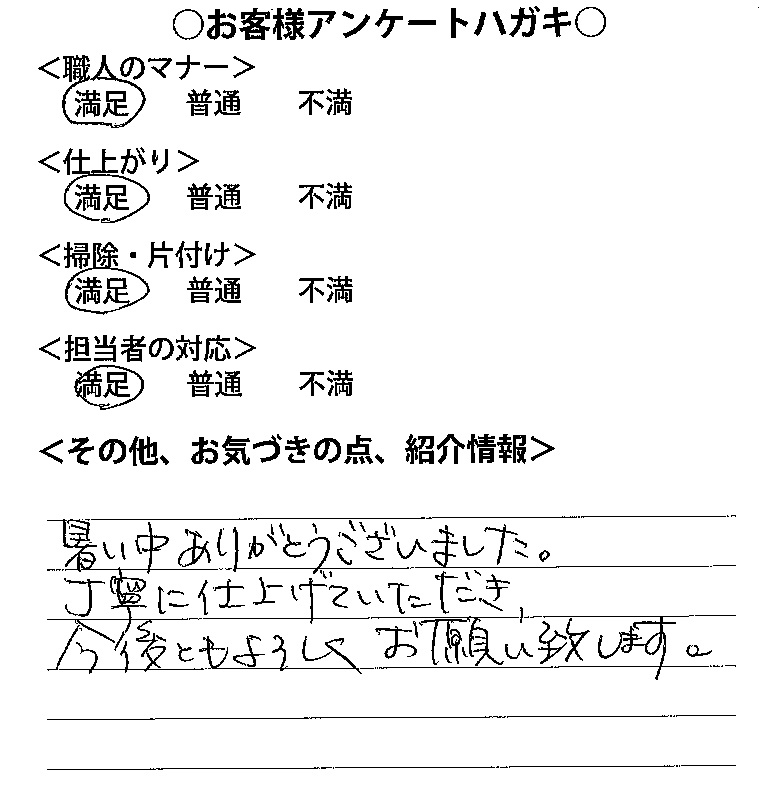 ○お客様アンケートハガキ○
＜職人のマナー＞
満足 普通 不満
＜仕上がり＞
満足 普通 不満
＜掃除・片付け＞
満足 普通 不満
＜担当者の対応＞
満足 普通 不満
＜その他、お気づきの点、紹介情報＞
暑い中ありがとうございました。
丁寧に仕上げていただき、
今後ともよろしく お願い致します。